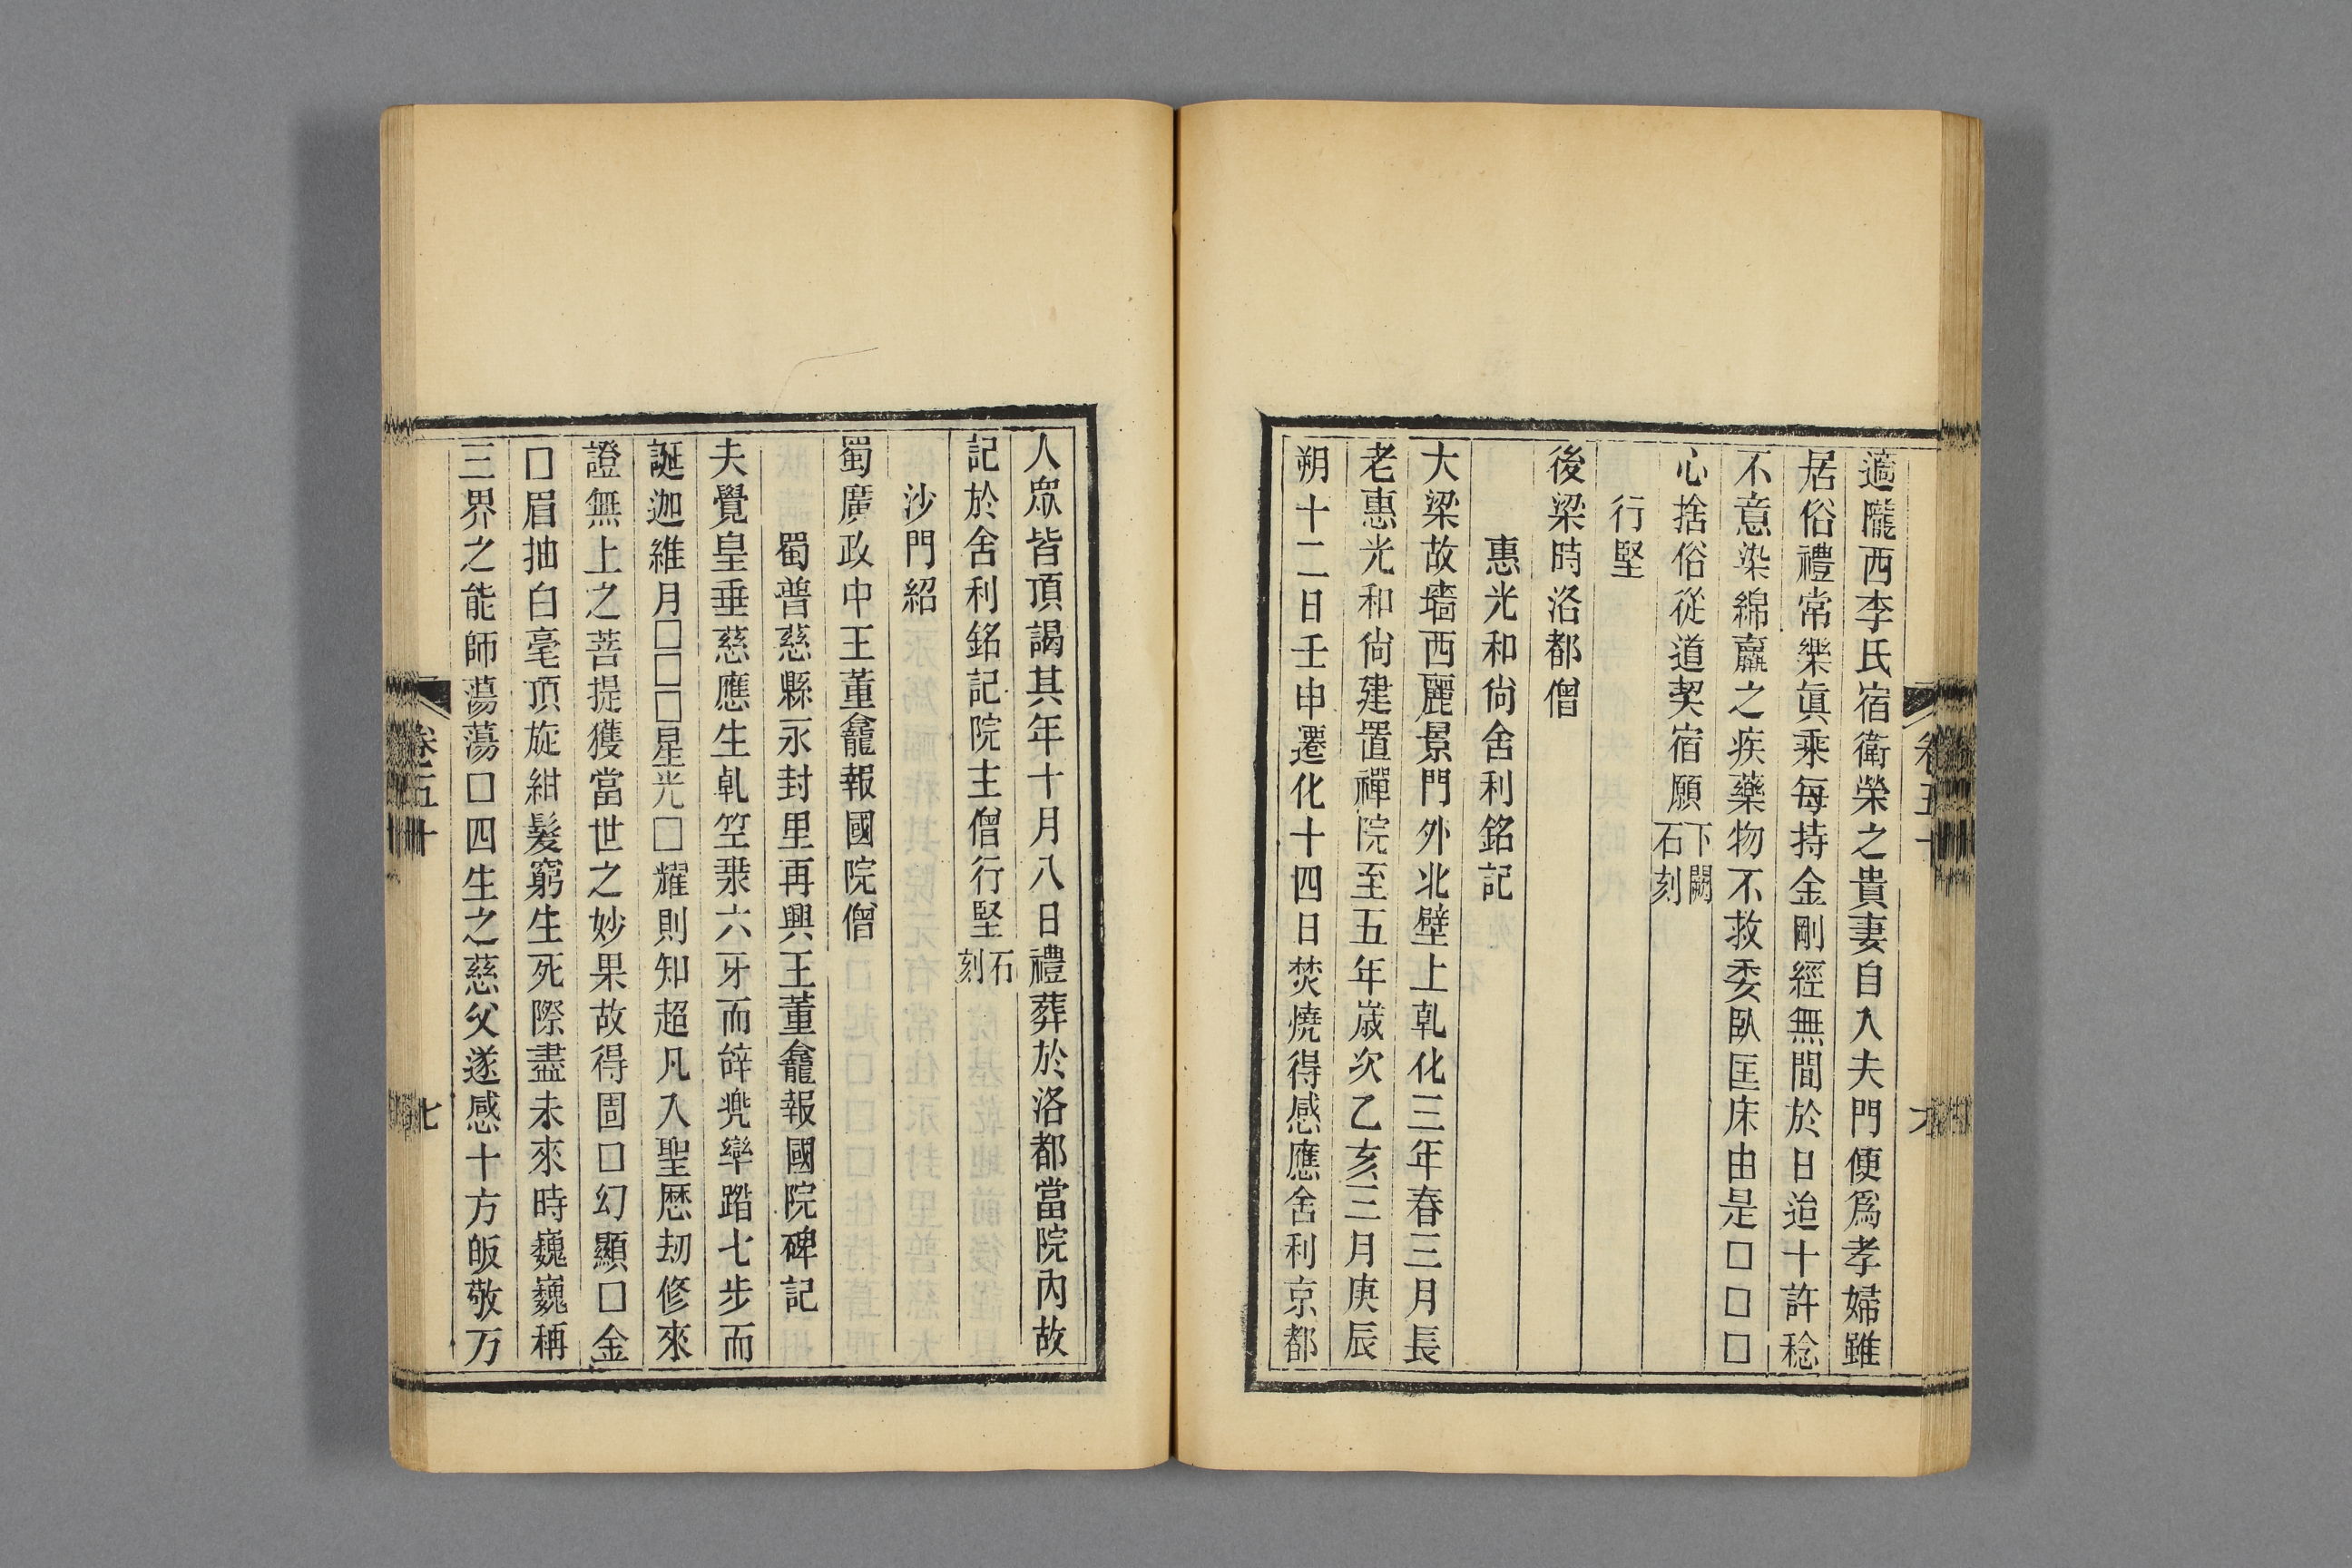 適隴西李氏宿衛榮之貴妻自入夫門便爲孝婦雖
居俗禮常樂眞乘每持金剛經無間於日迨十許稔
不意染綿羸之疾藥物不救委臥匡床由是□□□
心捨俗從道契宿願下闕石刻
行堅
後梁時洛都僧
惠光和尙舍利銘記
大梁故墻西麗景門外北壁上乹化三年春三月長
老惠光和尙建置禪院至五年歲次乙亥三月庚辰
朔十二日壬申遷化十四日焚燒得感應舍利京都
卷五十
六
人眾皆頂謁其年十月八日禮葬於洛都當院內故
記於舍利銘記院主僧行堅石刻
沙門紹
蜀廣政中王董龕報國院僧
蜀普慈縣永封里再興王董龕報國院碑記
夫覺皇垂慈應生乹竺椉六牙而辝兠率踏七步而
誕迦維月□□□星光□耀則知超凡入聖歷刼修來
證無上之菩提獲當世之妙果故得固□幻顯□金
□眉抽白毫頂旋紺髮窮生死際盡未來時巍巍稱
三界之能師蕩蕩□四生之慈父遂感十方皈敬万
卷五十
七